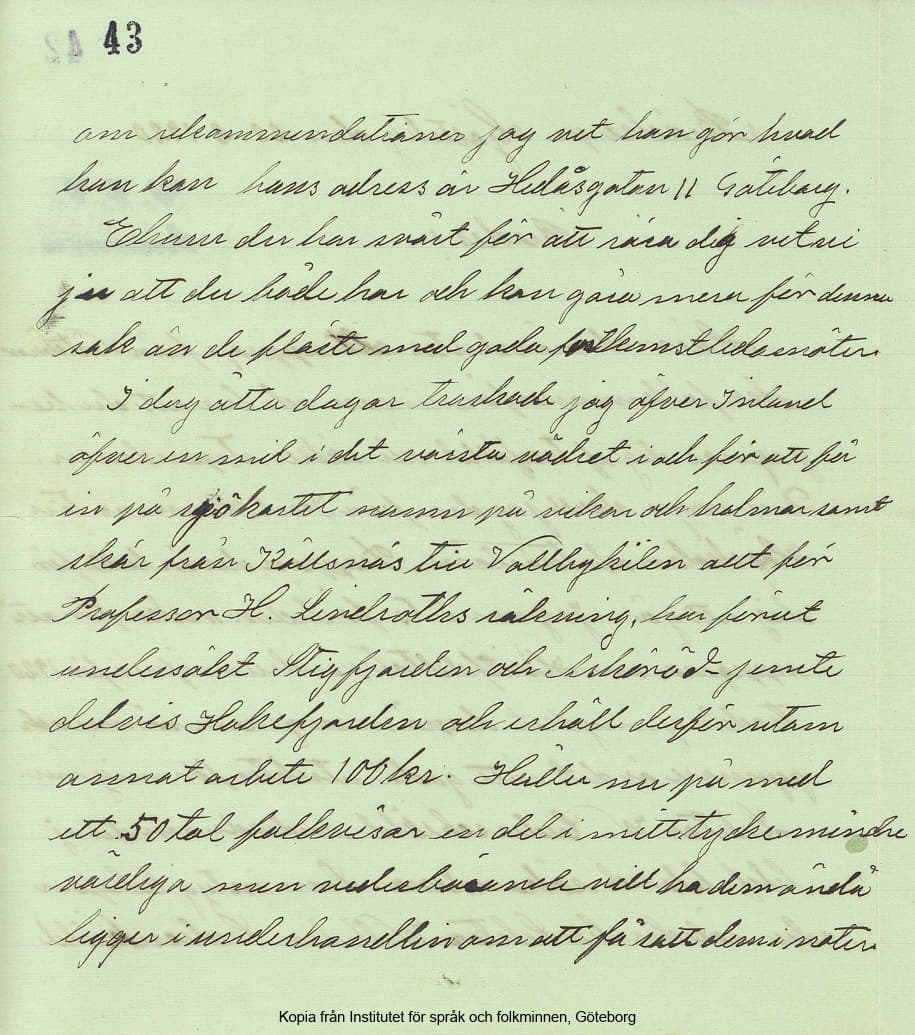 43
om rekommendationer jag vet han gör hvad
han kan hans adress är Hedåsgatan 11 Göteborg.
Ehuru du har svårt för att röra dig vet vi
ju att du både har och kan göra mera för denna
sak än de fläste med goda folkemstledsnöter.
I dag åtta dagar traskade jag öfver Inland
öfver en mil i det värsta vädret i och för att få
in på sjökortet namn på vikar och holmar samt
skär från Källsnäs till Vallbykilen allt för
Professor H. Lindroths räkning, har förut
undersökt Stigfjorden och Askeröd jemte
delvis Hakefjorden och erhåll derför utom
annat arbete 100 kr. Håller nu på med
ett 50 tal folkvisor en del i mitt tycke mindre
värdiga men vederbörande vill ha dem ändå
ligger i underhandlin om att få satt dem i noter.
Kopia från Institutet för språk och folkminnen, Göteborg